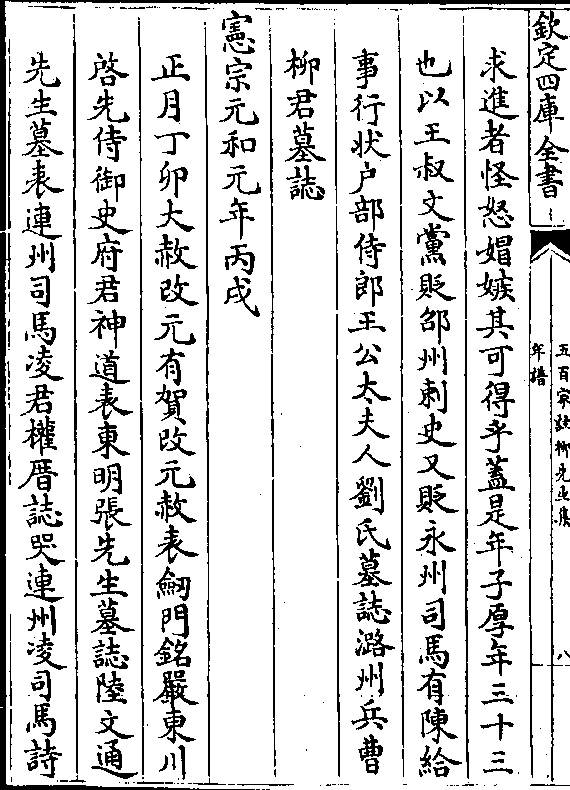 欽定四庫全書
五百家註柳先生集
年譜
八
求進者怪怒媢嫉其可得乎蓋是年子厚年三十三
也以王叔文黨貶邵州刺史又貶永州司馬有陳給
事行狀户部侍郎王公太夫人劉氏墓誌潞州兵曹
柳君墓誌
憲宗元和元年丙戌
正月丁卯大赦改元有賀改元赦表劒門銘嚴東川
啓先侍御史府君神道表東明張先生墓誌陸文通
先生墓表連州司馬凌君權厝誌哭連州凌司馬詩